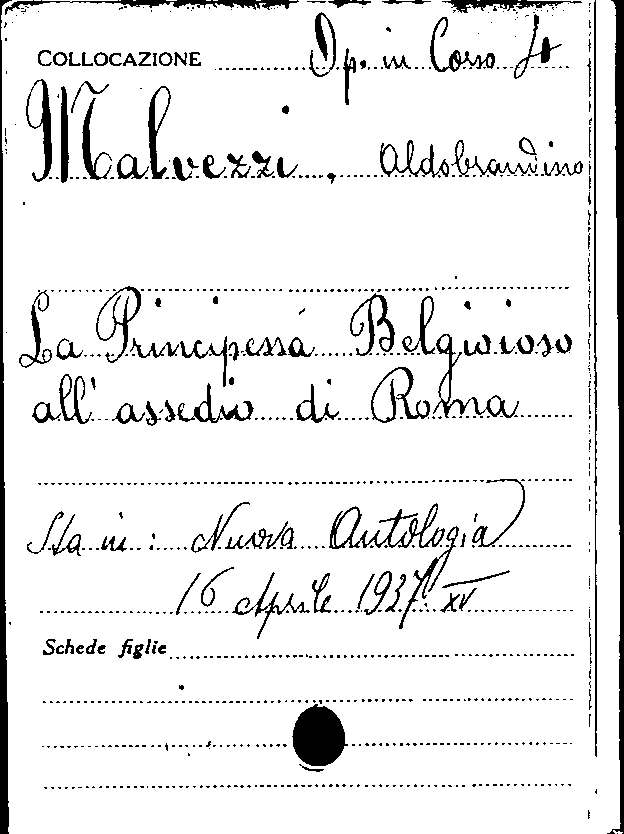 COLLOCAZIONE Op. in Corso
Malvezzi, Aldobrandino
La Principessa Belgioioso
all' assedio di Roma
Sta in: Nuova Antologia
16 Aprile 1937. XV
Schede figlie